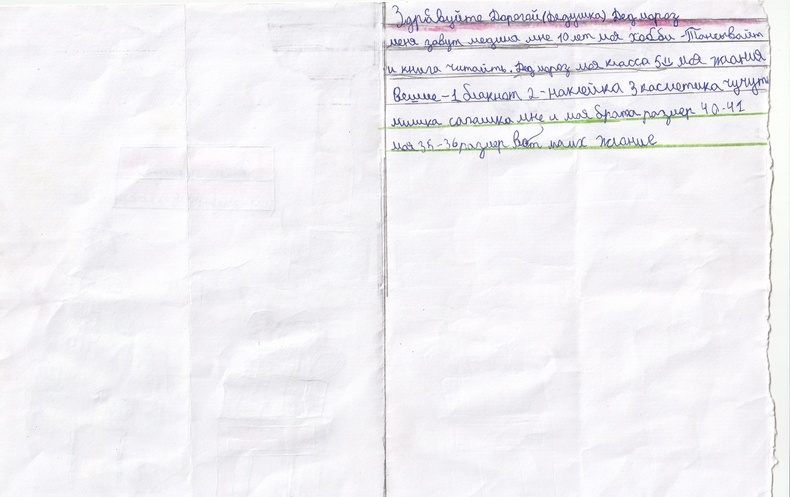 Здравуйте Дорогой (Дедушка) Дед мороз
меня завут медина мне 10 лет моя хобби - Тансывайт
и книга читайть. Дед мороз моя класса 5 "ш" моя жалния
- 1 блакнот 2 - наклейка 3 касметика чучут
мишка сапашка мне и моя брата размер 40-41
моя 35-36 размер вот маих жлание